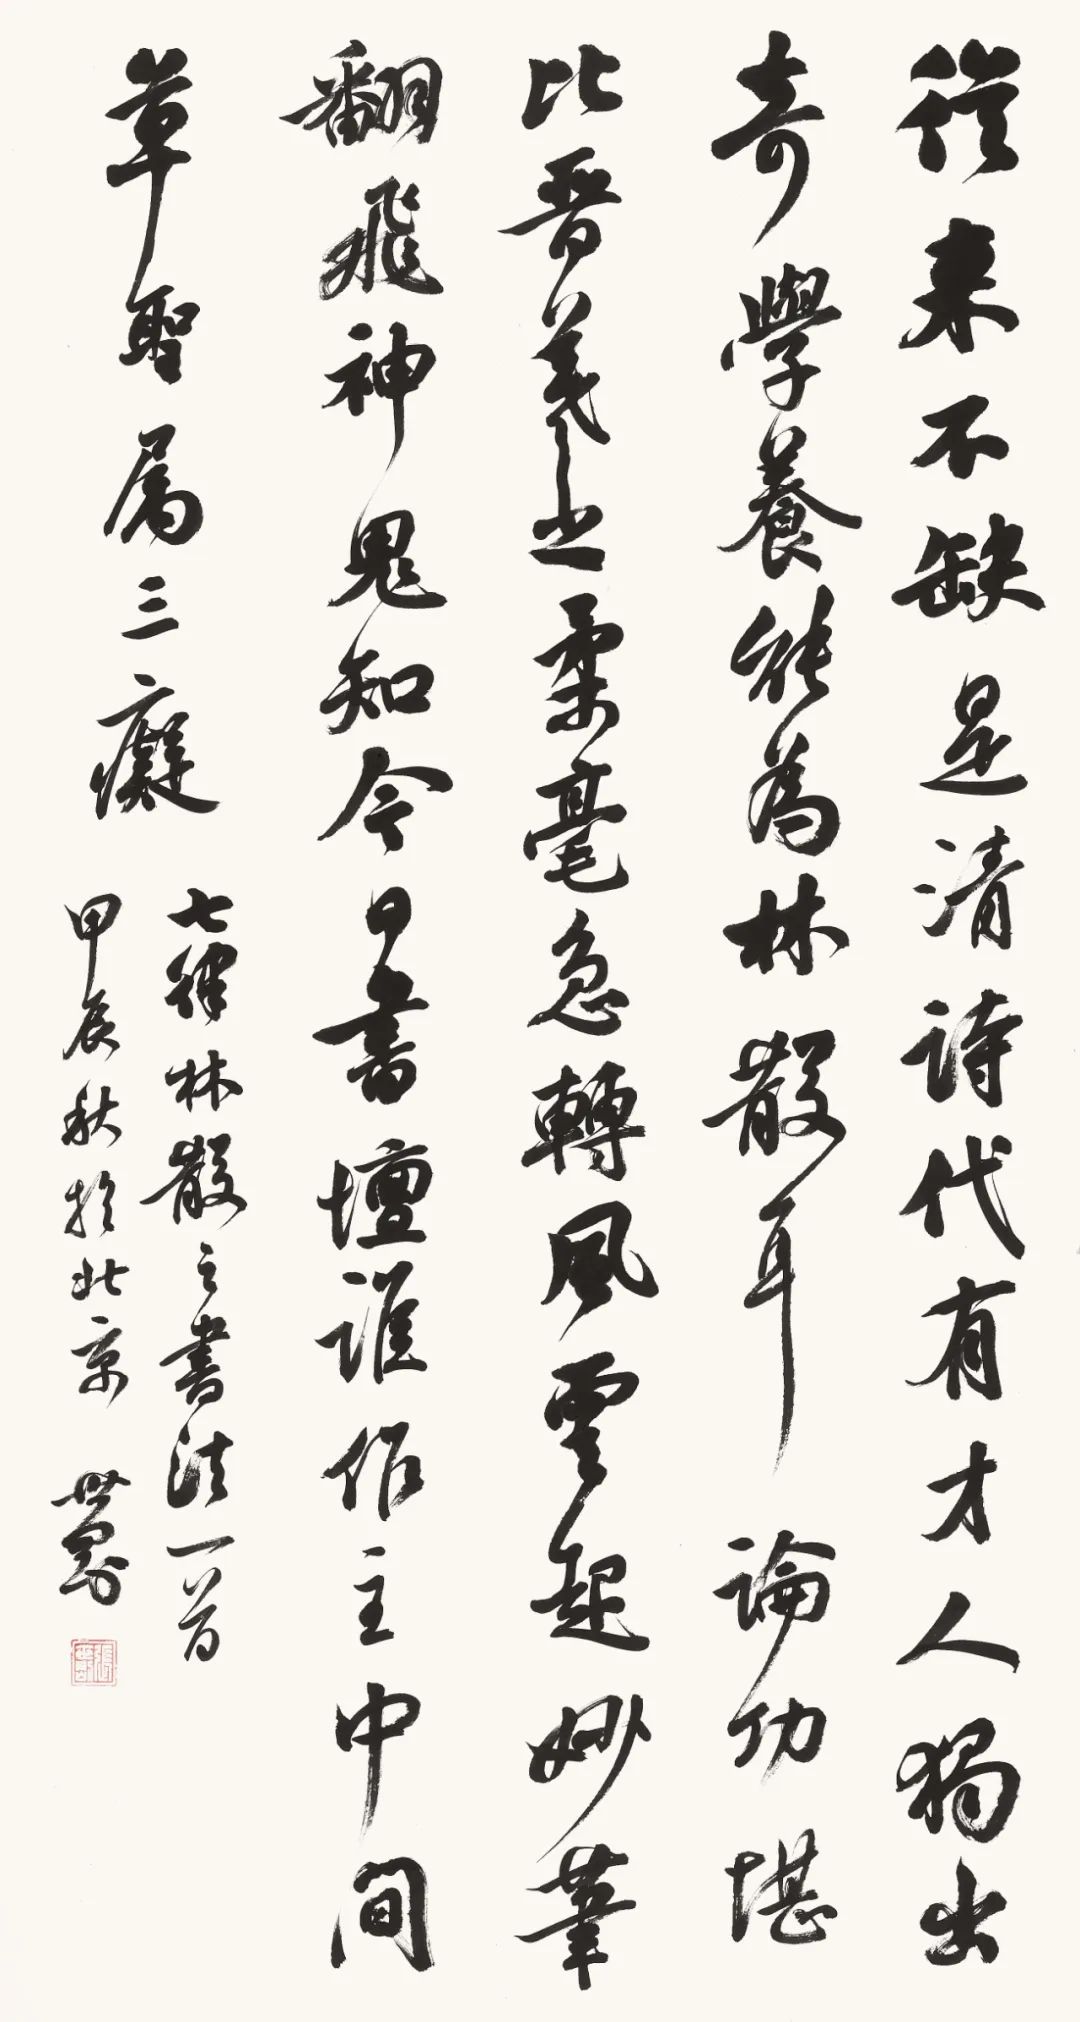 從来不缺是清詩代有才人獨出
奇學養能為林散耳論功堪
比晋羲之柔毫急轉風雲起妙筆
翻飛神鬼知今日書壇誰作主中間
草聖属三癡
七律林散之書法一首
甲辰秋於北京 世